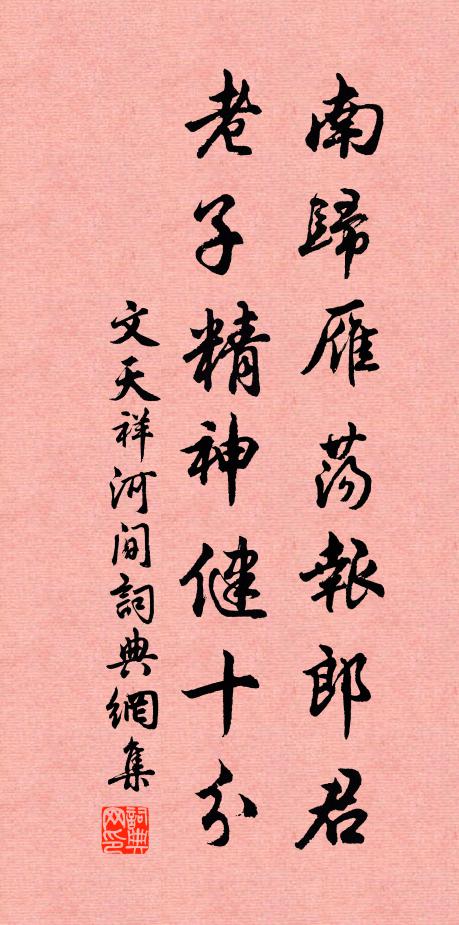 南歸雁蕩報郎君
老子精神健十分
文天祥河間詞典網集
詞典网印